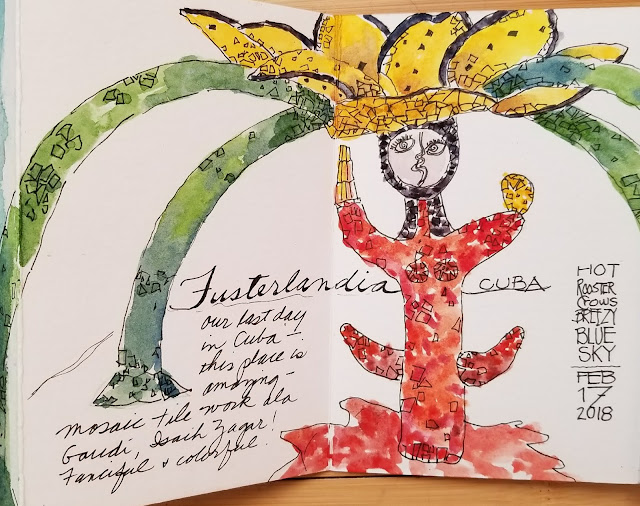 Fusterlandia CUBA
our last day
in Cuba –
this place is
amazing –
mosaic tile work ala
Gaudi, Isaih Zagar!
Fanciful & colorful!
HOT
ROOSTER
CROWS
BREEZY
BLUE
SKY
FEB
17
2018